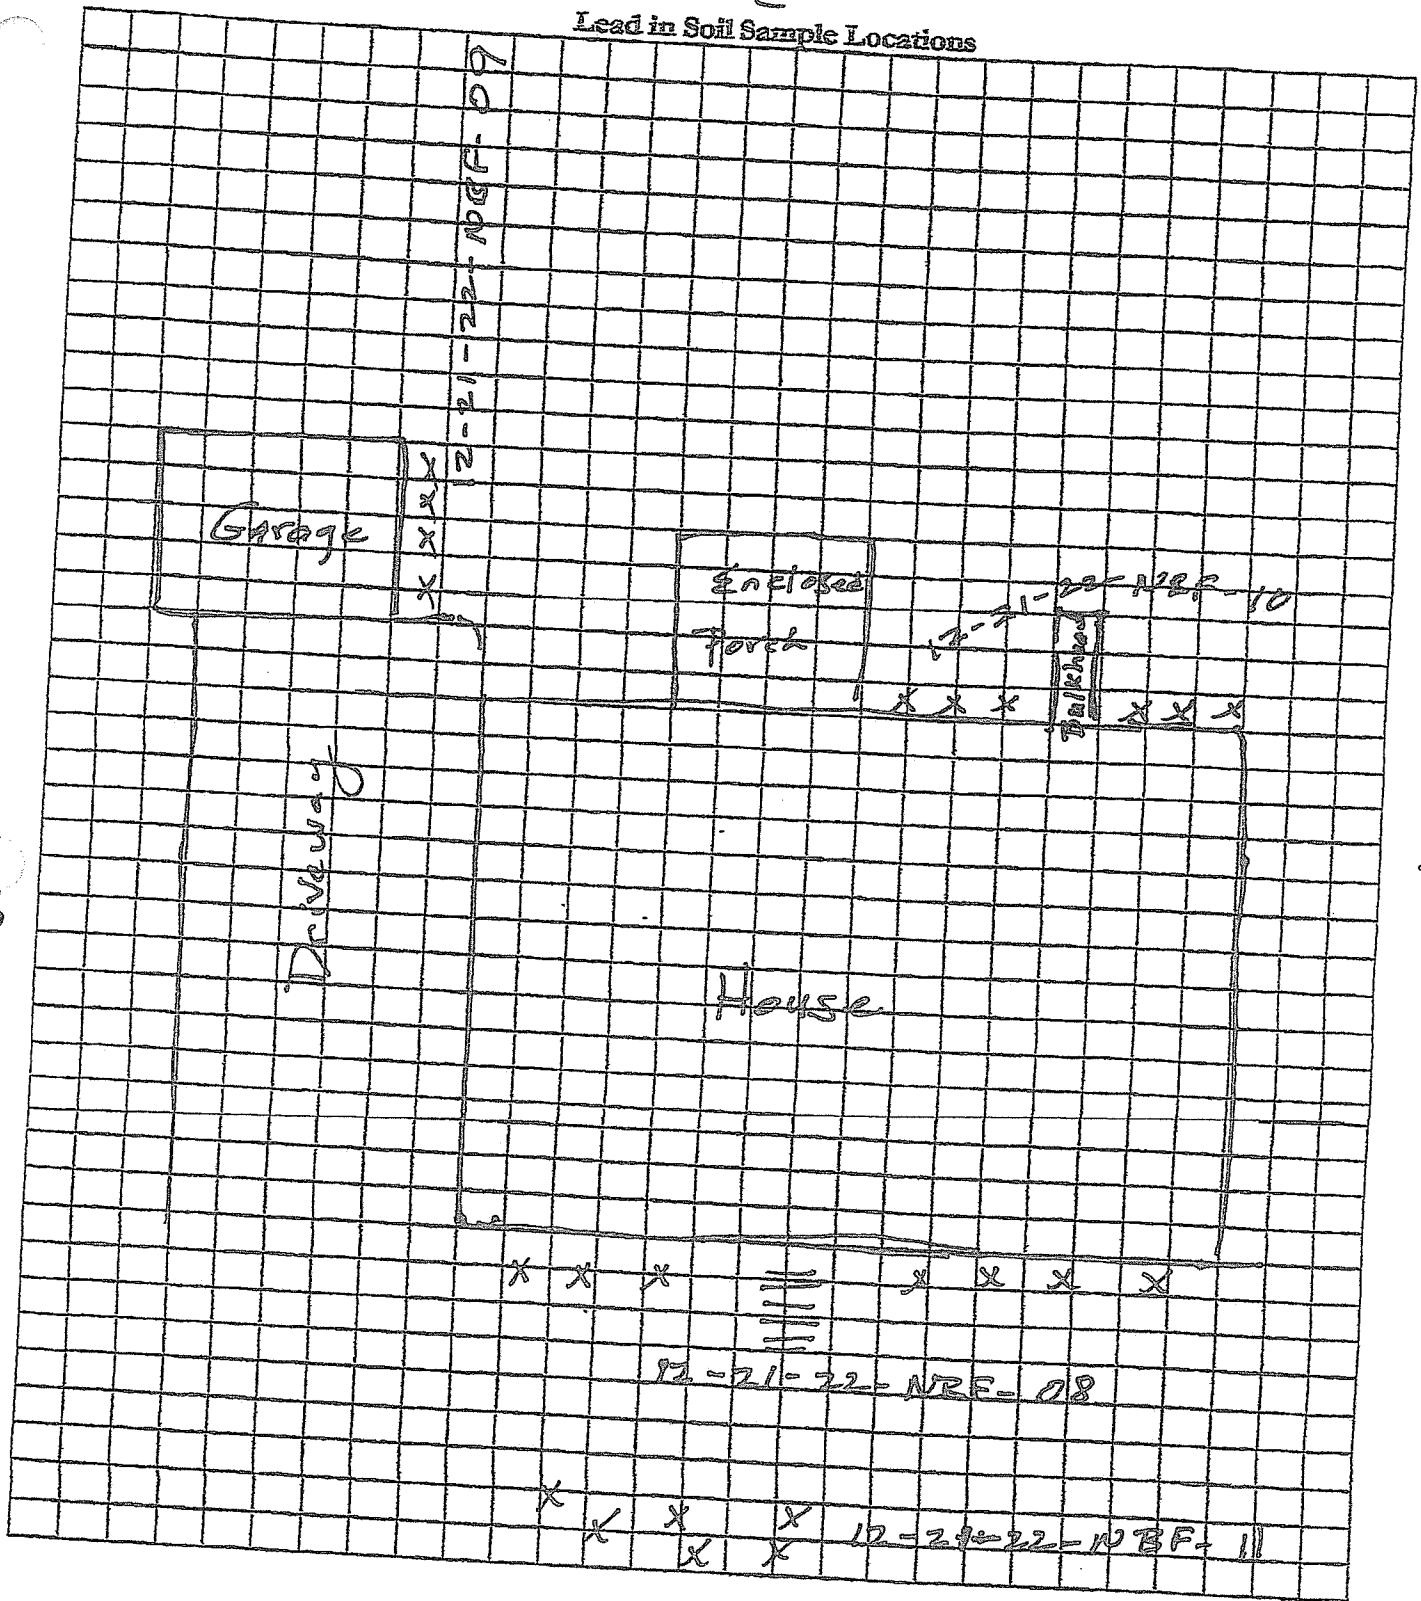 Lead in Soil Sample Locations
12-21-22-NBF-09
Garage
Enclosed
Porch
12-21-22-NBF-10
Bulkhead
Driveway
House
12-21-22-NBF-08
12-21-22-NBF-11